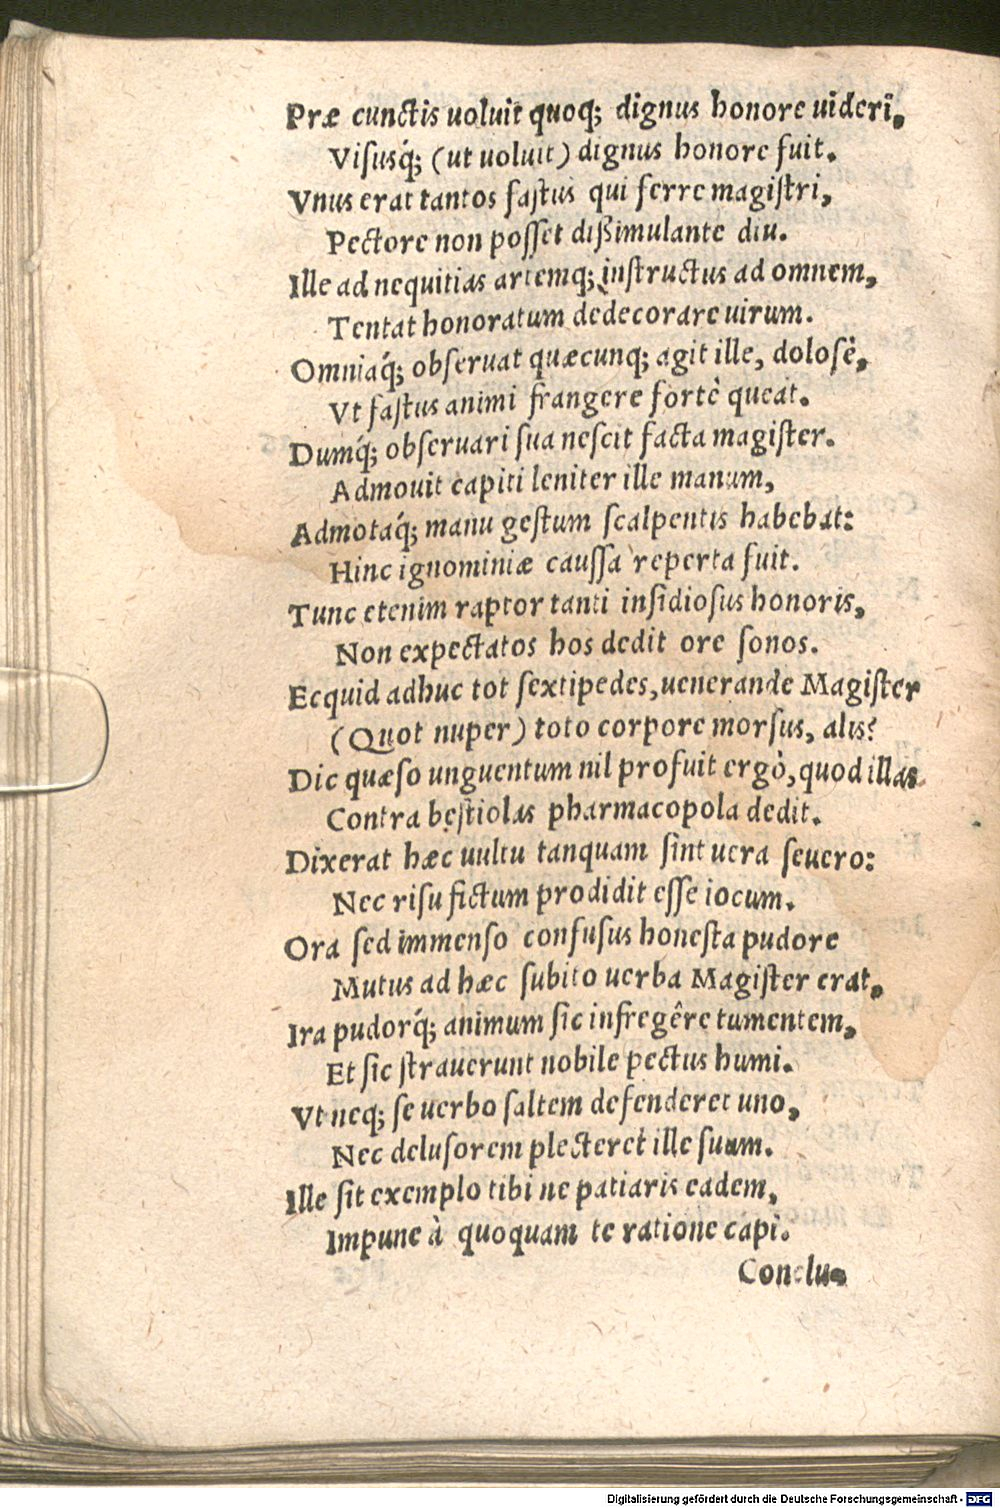 Præ cunctis uoluit quoq; dignus honore uideri,
Visusq́; (ut uoluit) dignus honore fuit.
Vnus erat tantos fastus qui ferre magistri,
Pectore non posset dißimulante diu.
Ille ad nequitias artemq; instructus ad omnem,
Tentat honoratum dedecorare uirum.
Omniaq́; obseruat quæcunq; agit ille, dolosè,
Vt fastus animi frangere fortè queat.
Dumq́; obseruari sua nescit facta magister.
Admouit capiti leniter ille manum,
Admotaq́; manu gestum scalpentis habebat:
Hinc ignominiæ caussa reperta fuit.
Tunc etenim raptor tanti insidiosus honoris,
Non expectatos hos dedit ore sonos.
Ecquid adhuc tot sextipedes, uenerande Magister
(Quot nuper) toto corpore morsus, alis?
Dic quæso unguentum nil profuit ergò, quod illas
Contra bestiolas pharmacopola dedit.
Dixerat hæc uultu tanquam sint uera seuero:
Nec risu fictum prodidit esse iocum.
Ora sed immenso confusus honesta pudore
Mutus ad hæc subito uerba Magister erat,
Ira pudorq́; animum sic infregêre tumentem,
Et sic strauerunt nobile pectus humi.
Vt neq; se uerbo saltem defenderet uno,
Nec delusorem plecteret ille suum.
Ille sit exemplo tibi ne patiaris eadem,
Impune à quoquam te ratione capi.
Conclu-
Digitalisierung gefördert durch die Deutsche Forschungsgemeinschaft - DFG